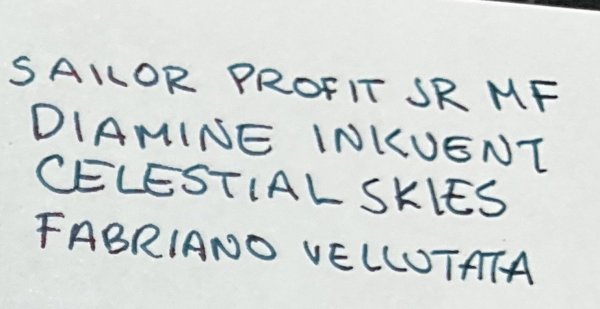 SAILOR PROFIT JR MF
DIAMINE INKVENT
CELESTIAL SKIES
FABRIANO VELLUTATA